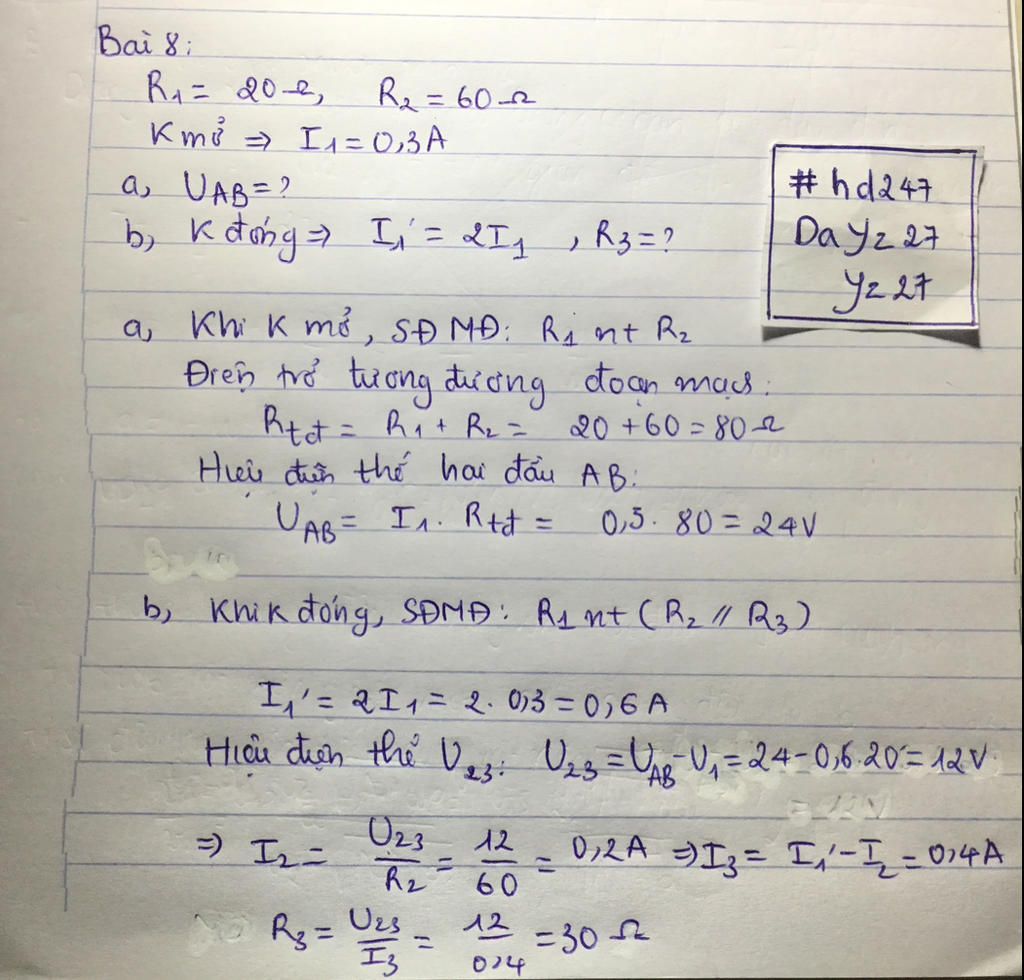 Bài 8:
R1 = 20Ω, R2 = 60Ω
K mở ⇒ I1 = 0,3A
a, UAB = ?
b, K đóng ⇒ I1' = 2I1 , R3 = ?
#hd247
Dayz27
yz27
a, Khi K mở, SĐMĐ: R1 nt R2
Điện trở tương đương đoạn mạch:
Rtđ = R1 + R2 = 20 + 60 = 80Ω
Hiệu điện thế hai đầu AB:
UAB = I1. Rtđ = 0,3. 80 = 24V
b, Khi K đóng, SĐMĐ: R1 nt (R2 // R3)
I1' = 2I1 = 2. 0,3 = 0,6A
Hiệu điện thế U23: U23 = UAB - U1 = 24 - 0,6.20 = 12V
⇒ I2 = U23/R2 = 12/60 = 0,2A ⇒ I3 = I1' - I2 = 0,4A
R3 = U23/I3 = 12/0,4 = 30Ω